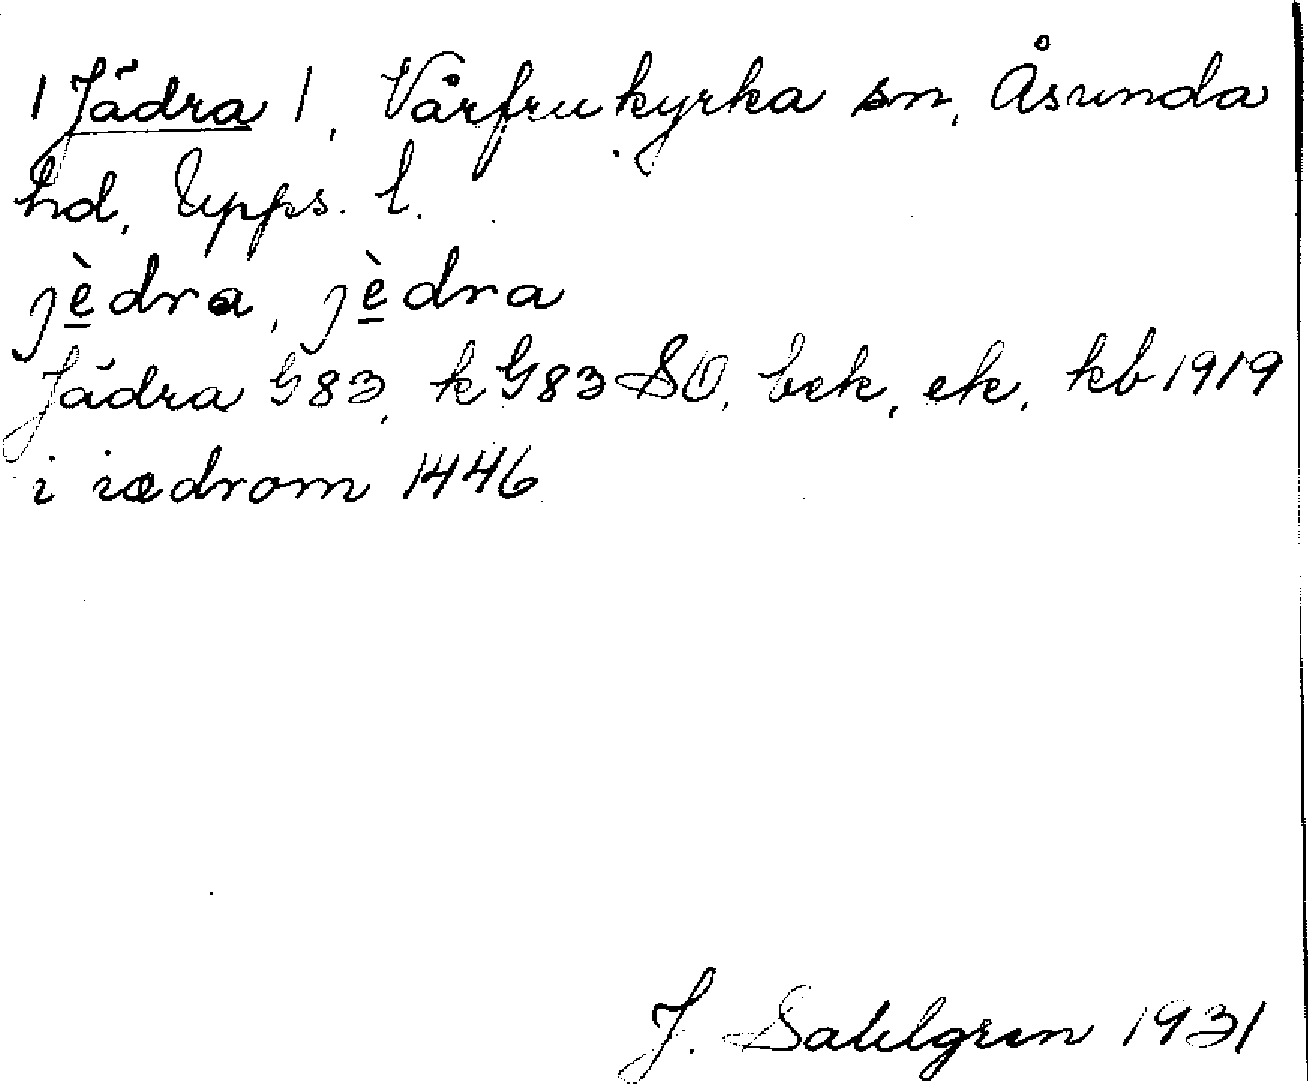 1 Jädra 1, Vårfrukyrka sn, Åsunda
hd, Upps. l.
jè̱dra, jè̱dra
Jädra G83, k G83 SO, bek, ek, kb 1919
i iædrom 1446
J. Sahlgren 1931